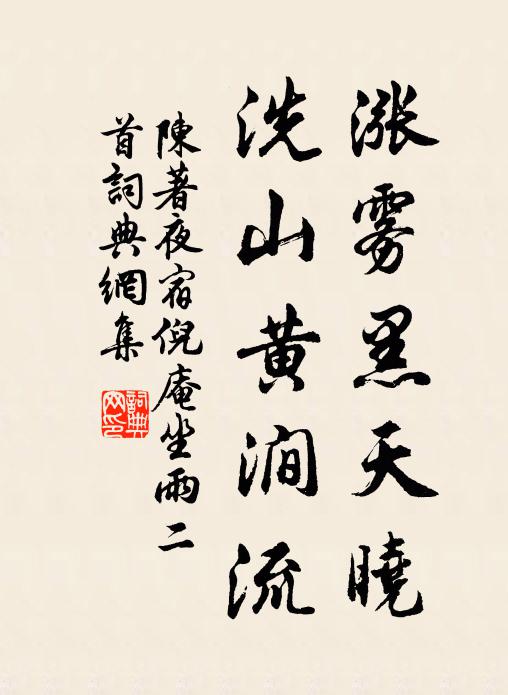 漲雾黑天曉
洗山黄澗流
陳著夜宿倪庵坐雨二
首詞典網集
詞典网印